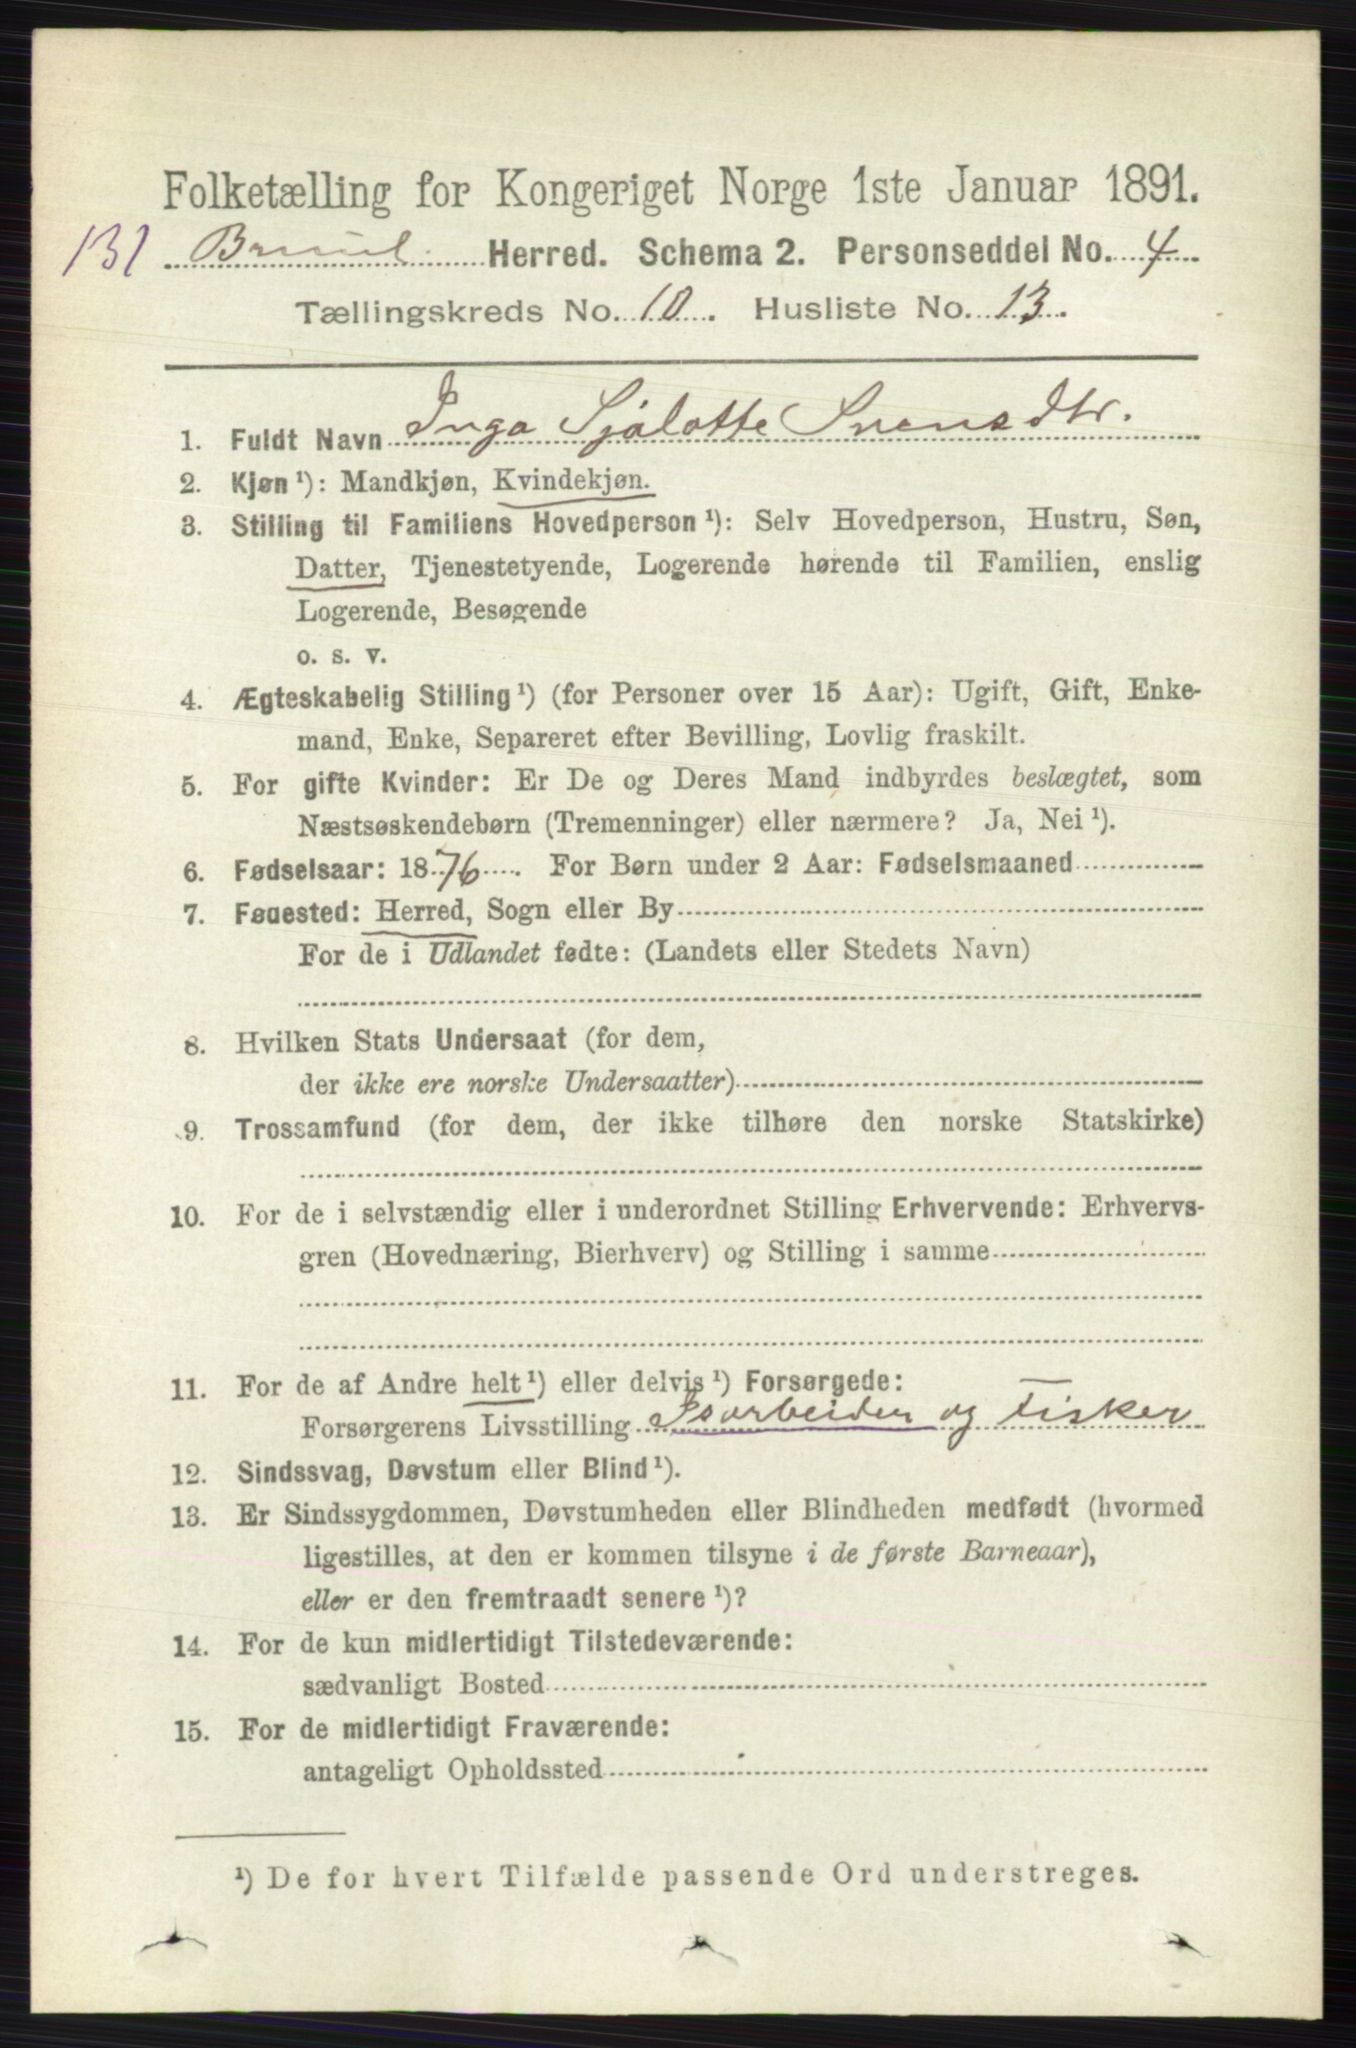 Folketælling for Kongeriget Norge 1ste Januar 1891.
131 Herred. Schema 2. Personseddel No. 4
Tællingskreds No. 10. Husliste No. 13.
1. Fuldt Navn Inga Sjalotte Svensdtr.
2. Kjøn ¹): Mandkjøn, Kvindekjøn.
3. Stilling til Familiens Hovedperson ¹): Selv Hovedperson, Hustru, Søn,
Datter, Tjenestetyende, Logerende hørende til Familien, enslig
Logerende, Besøgende
o. s. v.
4. Ægteskabelig Stilling ¹) (for Personer over 15 Aar): Ugift, Gift, Enke-
mand, Enke, Separeret efter Bevilling, Lovlig fraskilt.
5. For gifte Kvinder: Er De og Deres Mand indbyrdes beslægtet, som
Næstsøskendebørn (Tremenninger) eller nærmere? Ja, Nei ¹).
6. Fødselsaar: 1876. For Børn under 2 Aar: Fødselsmaaned
7. Fødested: Herred, Sogn eller By
For de i Udlandet fødte: (Landets eller Stedets Navn)
8. Hvilken Stats Undersaat (for dem,
der ikke ere norske Undersaatter)
9. Trossamfund (for dem, der ikke tilhøre den norske Statskirke)
10. For de i selvstændig eller i underordnet Stilling Erhvervende: Erhvervs-
gren (Hovednæring, Bierhverv) og Stilling i samme
11. For de af Andre helt ¹) eller delvis ¹) Forsørgede:
Forsørgerens Livsstilling Isarbeider og Fisker
12. Sindssvag, Døvstum eller Blind ¹).
13. Er Sindssygdommen, Døvstumheden eller Blindheden medfødt (hvormed
ligestilles, at den er kommen tilsyne i de første Barneaar),
eller er den fremtraadt senere ¹)?
14. For de kun midlertidigt Tilstedeværende:
sædvanligt Bosted
15. For de midlertidigt Fraværende:
antageligt Opholdssted
¹) De for hvert Tilfælde passende Ord understreges.